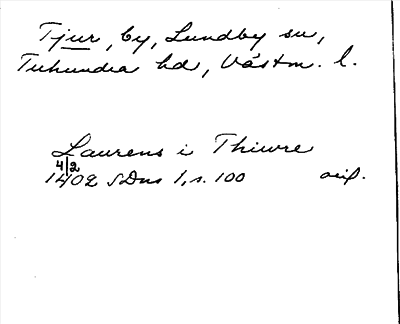 Tjur, by, Lundby sn,
Tuhundra hd, Västm. l.
Laurens i Thiwre
4/2
1402 SDns 1, s. 100 orig.